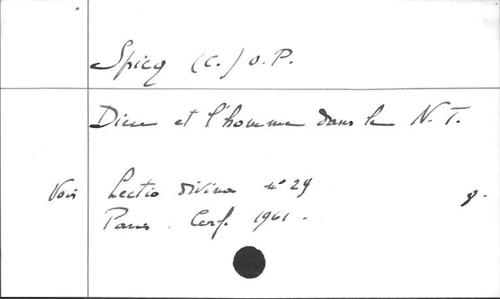 Spicq (C.) O.P.
Dieu et l'homme dans le N.T.
Voir Lectio divina n° 29
Paris. Cerf. 1961.